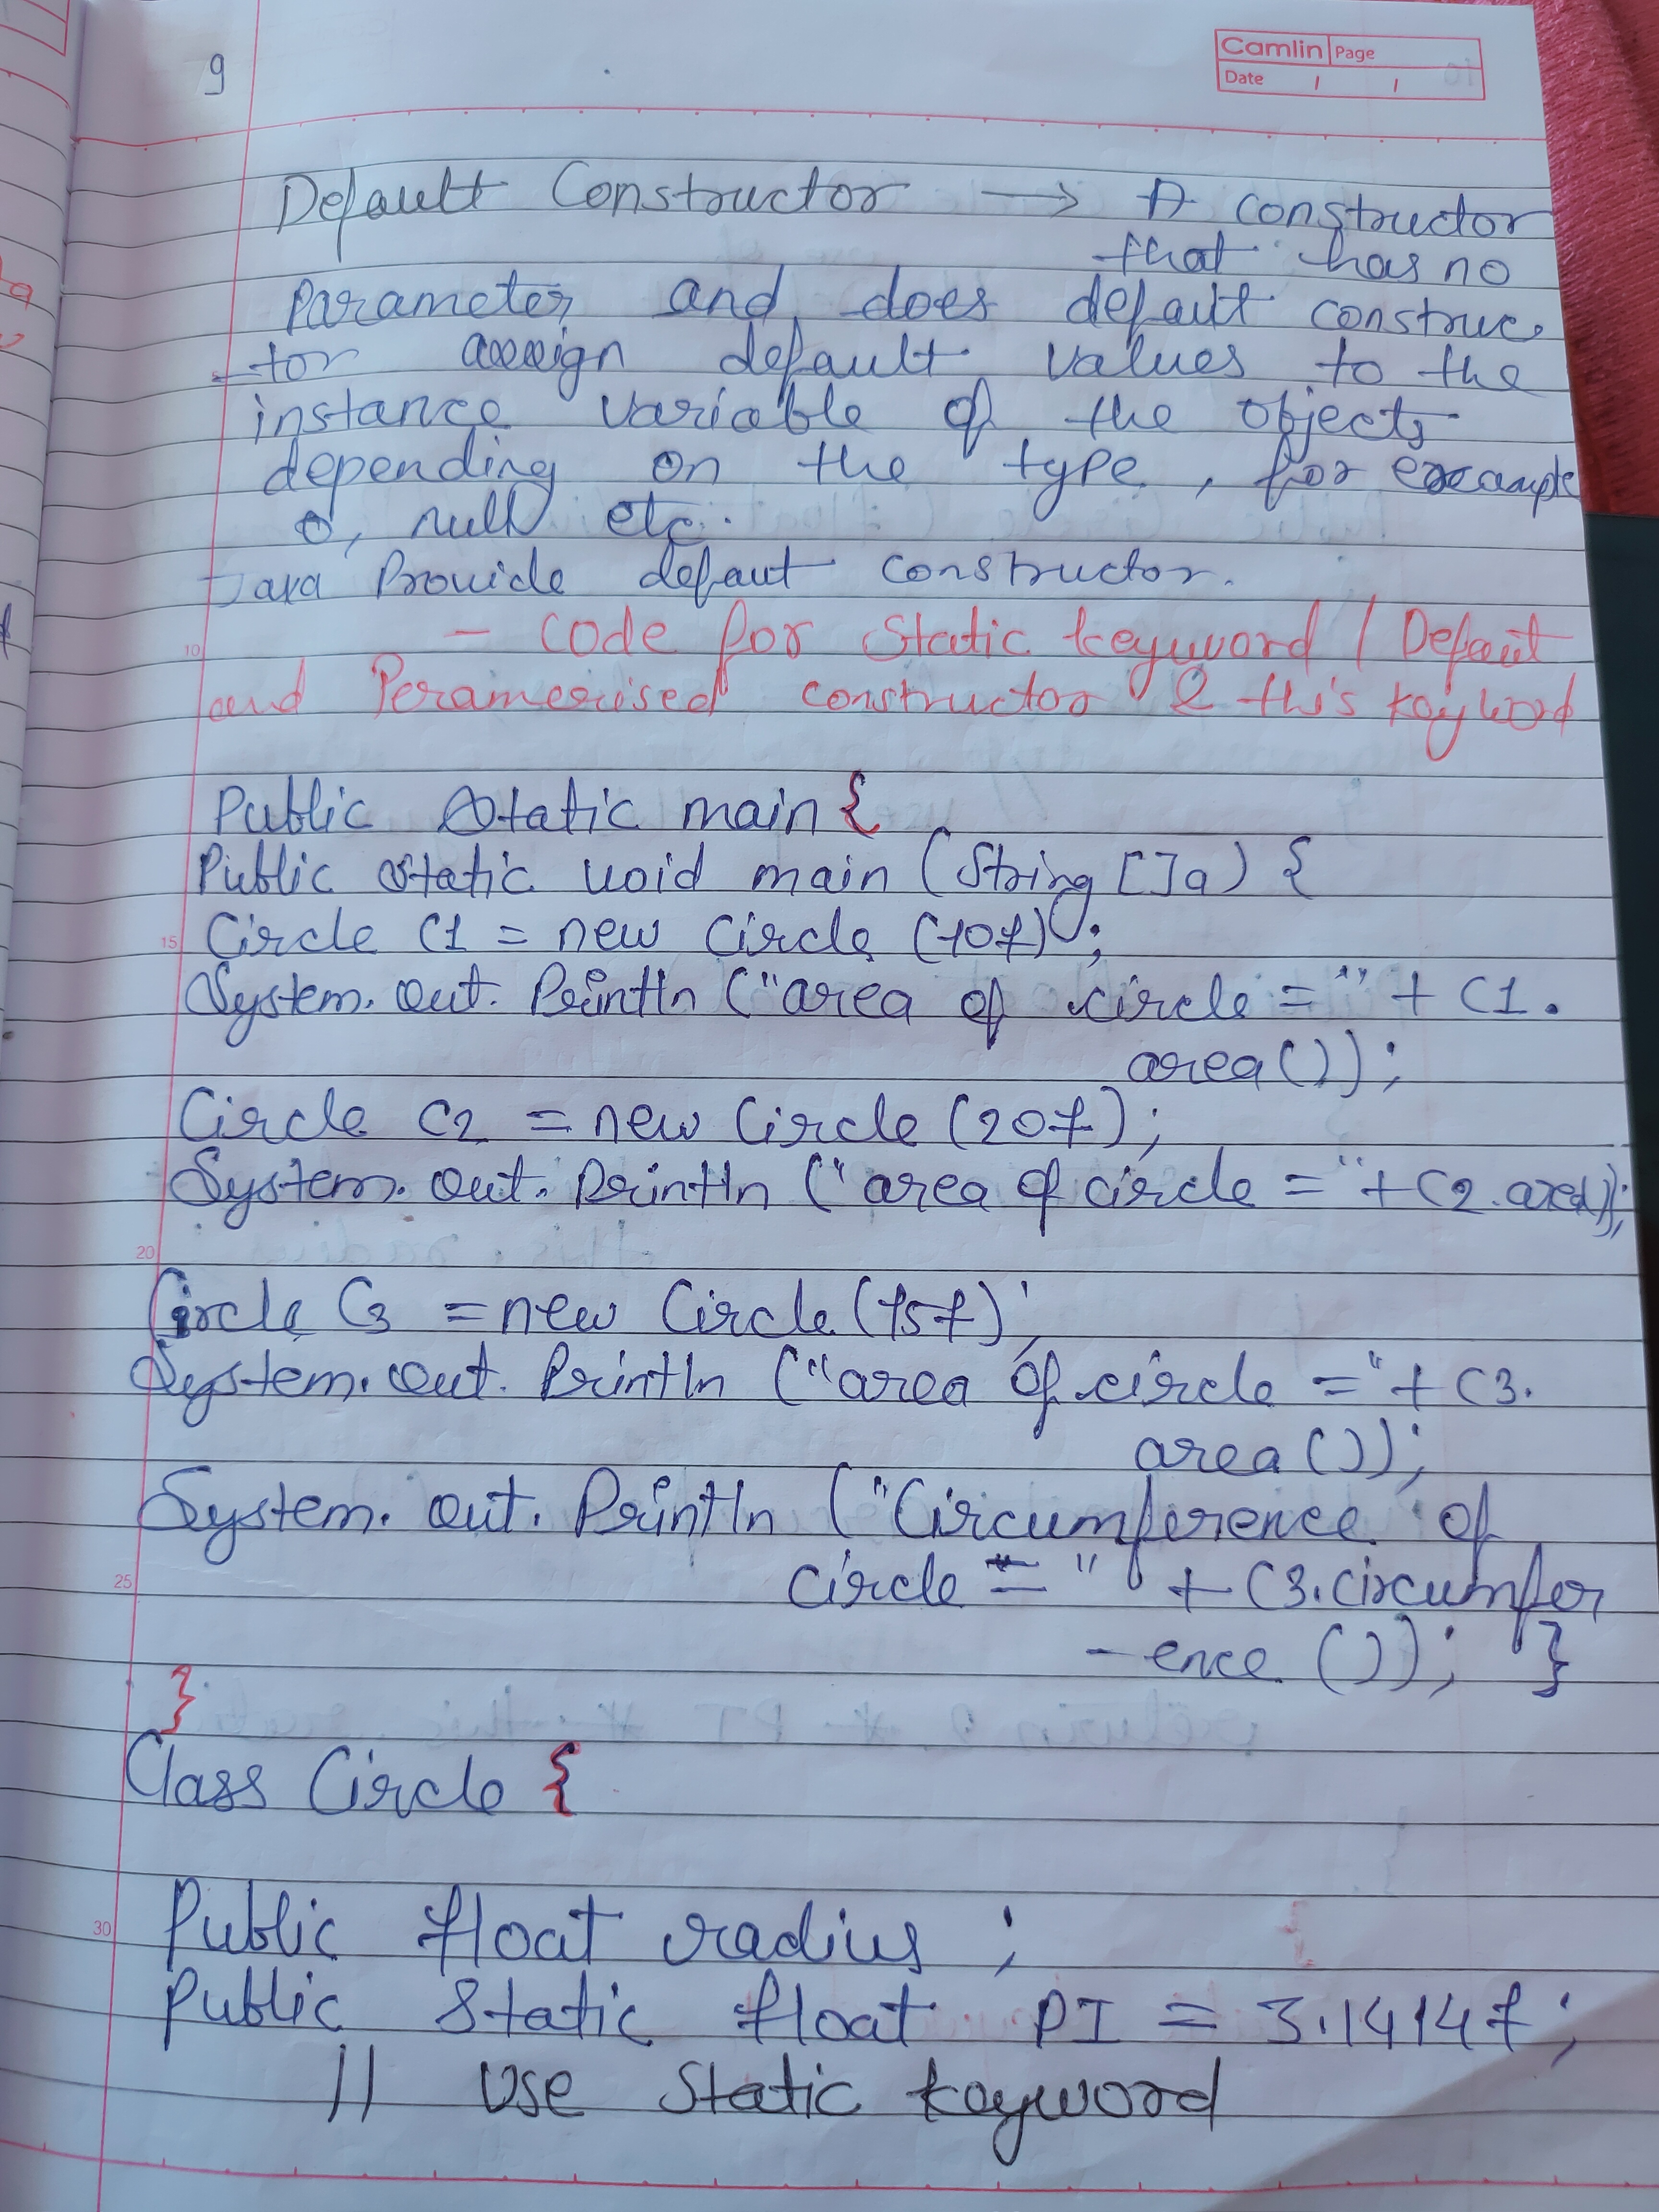 9
Camlin Page
Date / /
Default Constructor → A constructor
that has no
Parameter and does default construc
-tor assign default values to the
instance variable of the objects
depending on the type, for example
0, null etc.
Java Provide defaut constructor.
- Code for Static keyword / Defauit
and Peramerised constructor & this keyword
Public Static main {
Public static void main (String []a) {
Circle C1 = new Circle (10f);
System. out. Println ("area of circle =" + C1.
area());
Circle C2 = new Circle (20f);
System. out. Println ("area of circle =" + C2.area);
Circle C3 = new Circle (15f);
System. out. Println ("area of circle =" + C3.
area());
System. out. Println ("Circumference of
circle = " + C3.circumfer
-ence ()); }
}
Class Circle {
Public float radius ;
Public Static float PI = 3.1414f;
// Use Static keyword
10
15
20
25
30